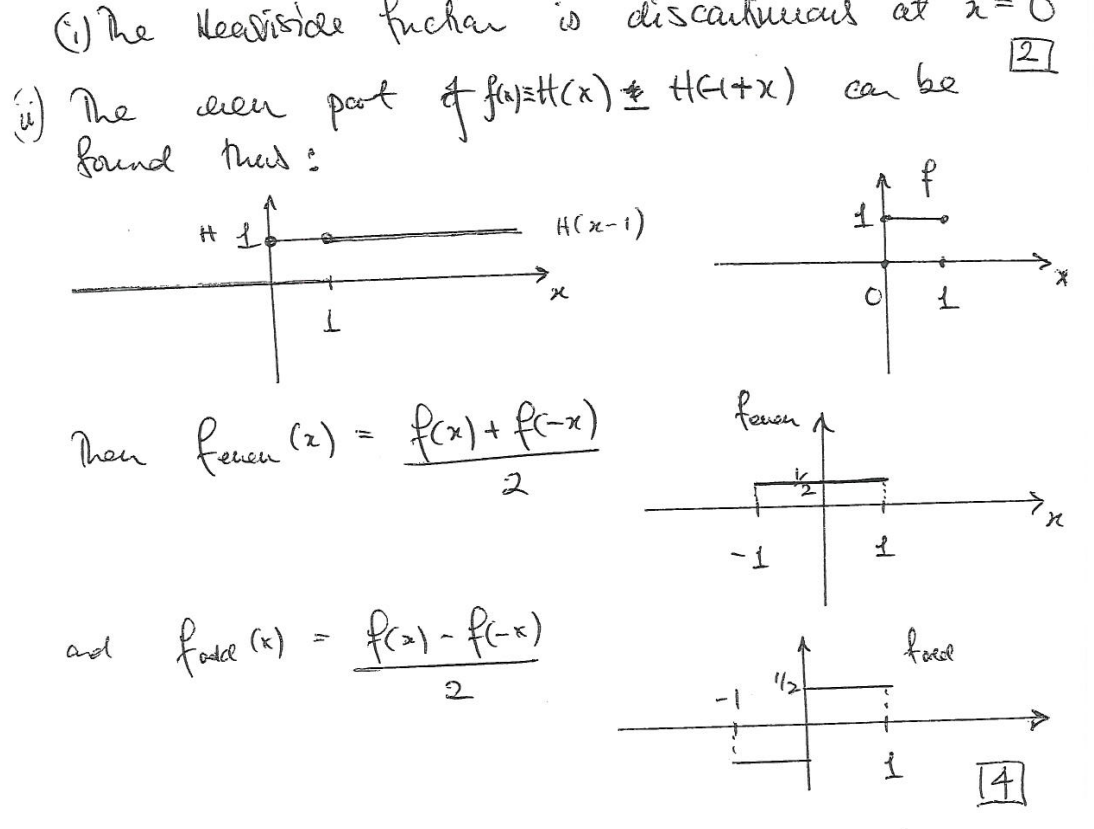 (i) The Heaviside function is discontinuous at x = 0
[2]
(ii) The even part of f(x)≡H(x) ± H(-1+x) can be
found thus:
H 1 H(x-1)
x
1
f
1
x
0 1
Then f_even (x) = f(x) + f(-x) / 2
f_even
1/2
x
-1 1
and f_odd (x) = f(x) - f(-x) / 2
f_odd
1/2
-1
1
[4]